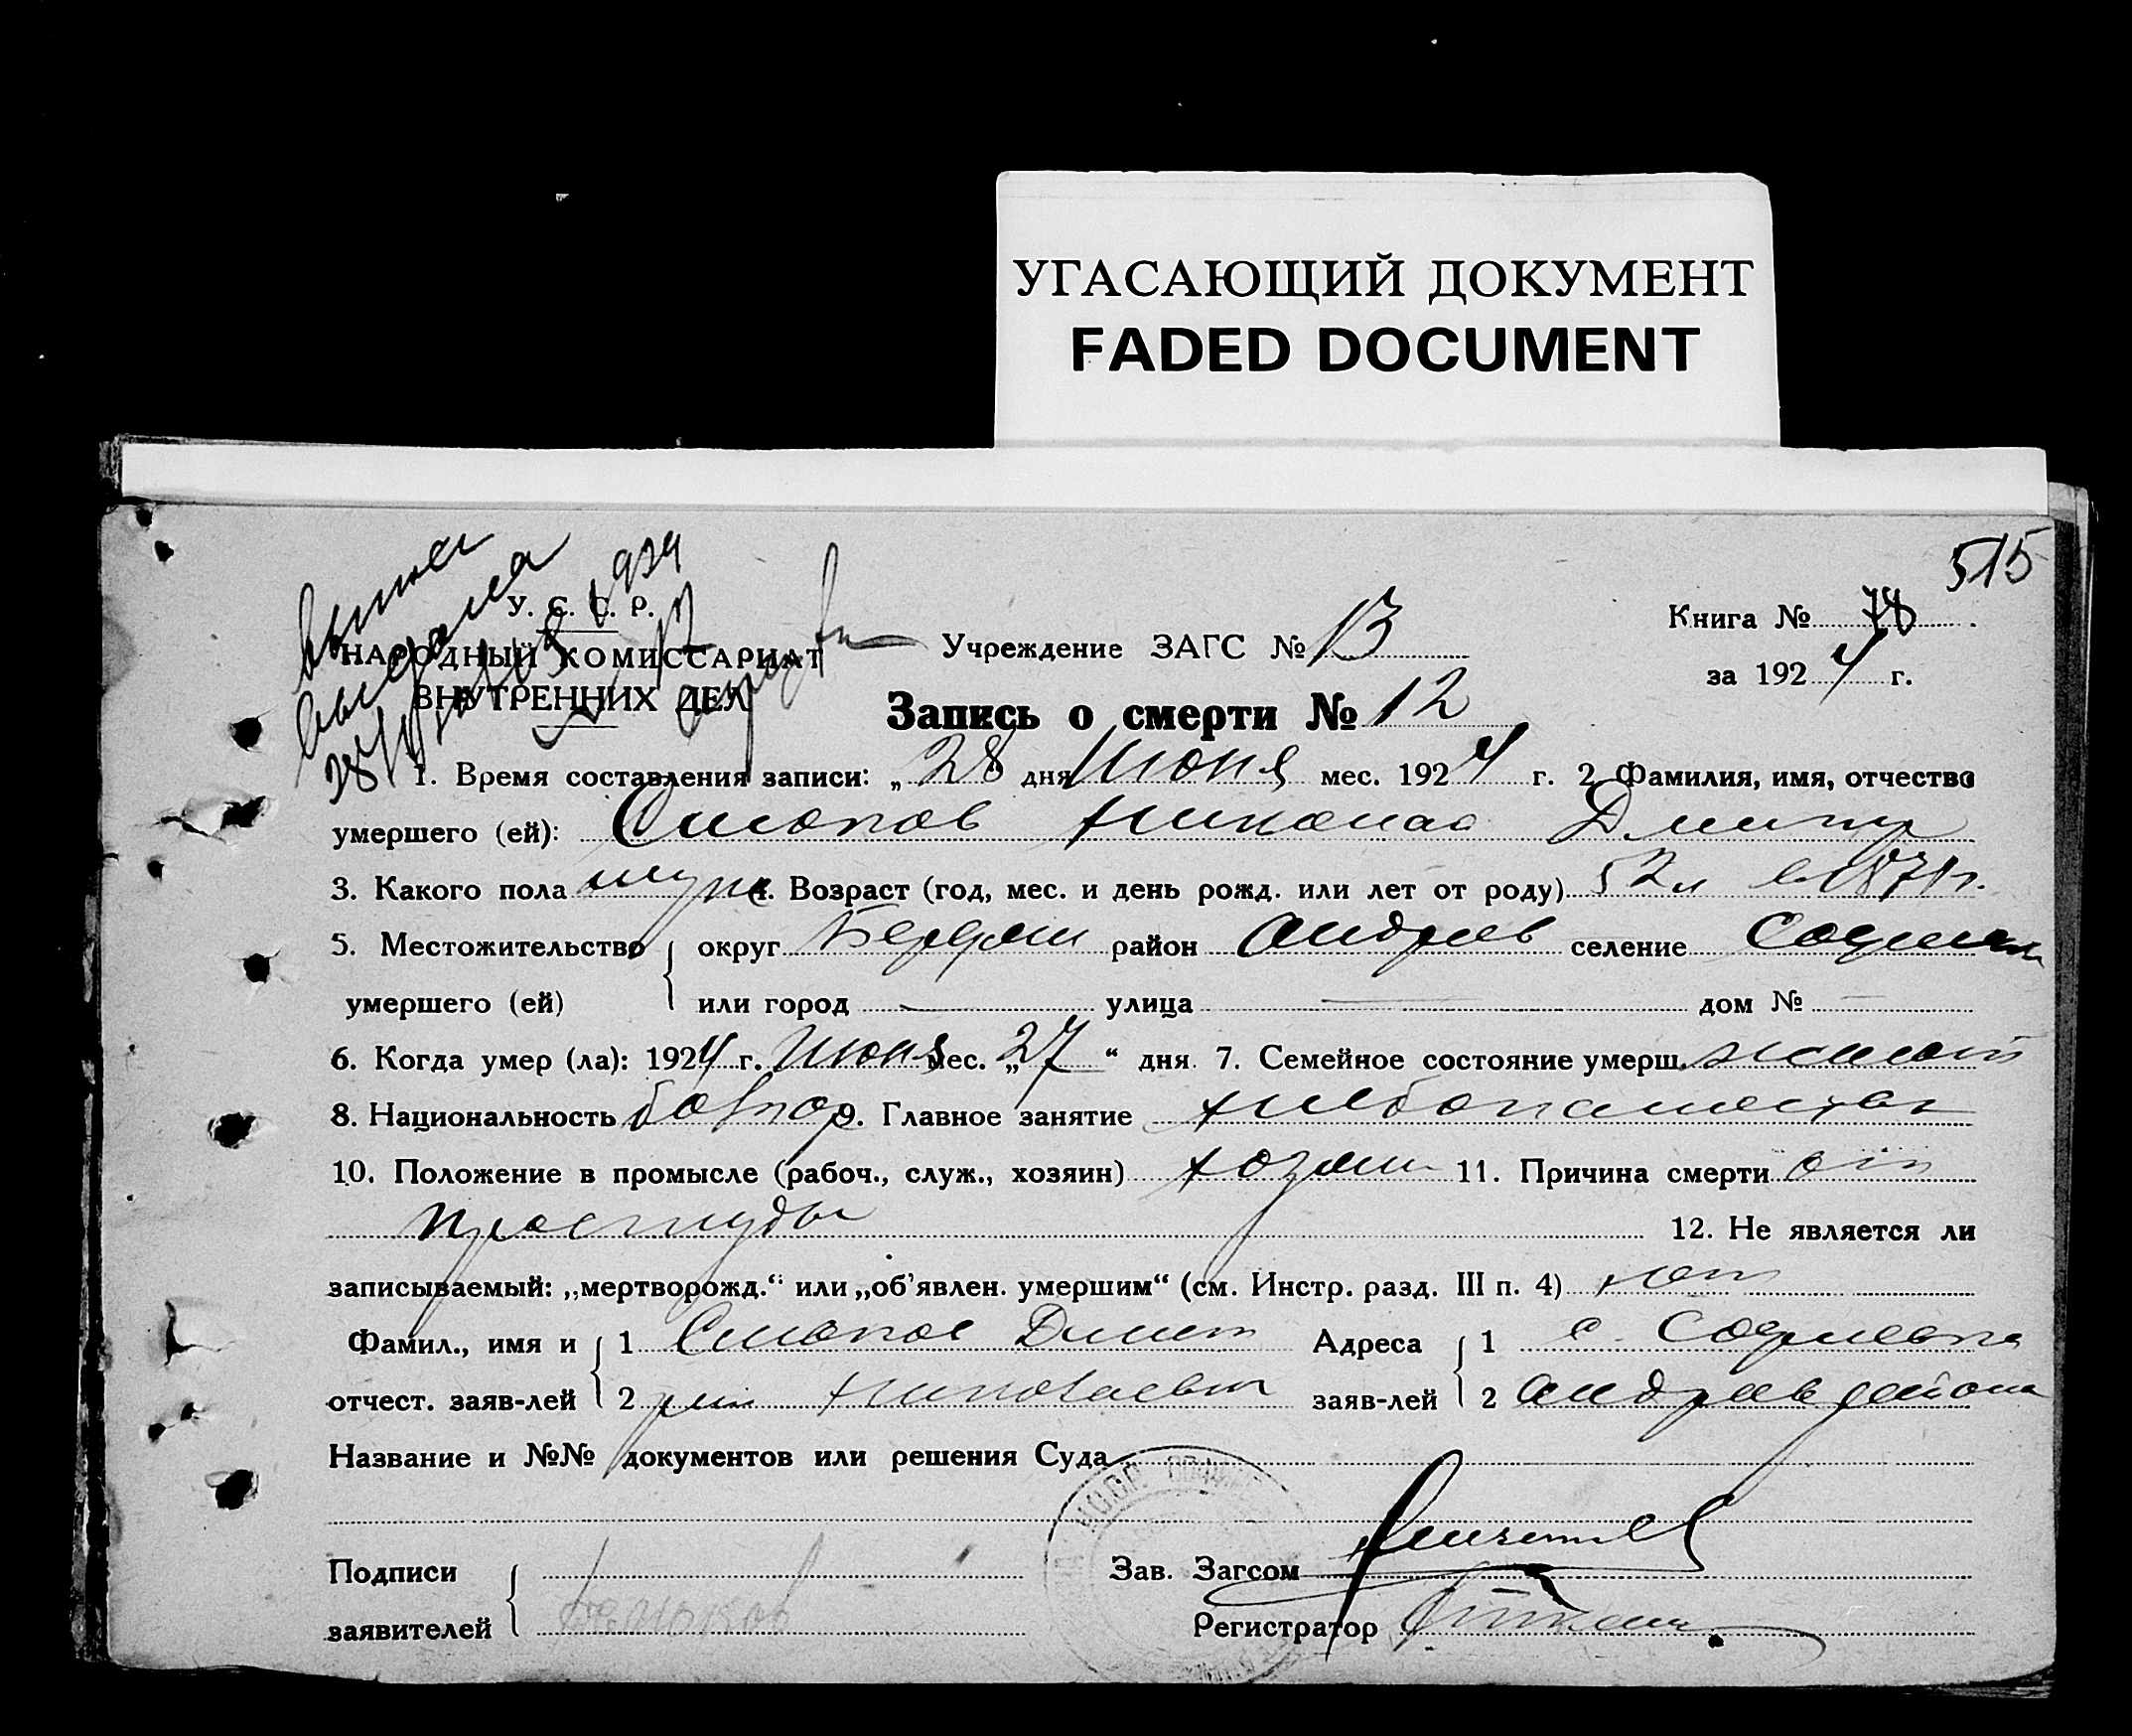 УГАСАЮЩИЙ ДОКУМЕНТ
FADED DOCUMENT
515
У. С. С. Р.
НАРОДНЫЙ КОМИССАРИАТ
ВНУТРЕННИХ ДЕЛ
Учреждение ЗАГС № 13
Книга № 78
за 1924 г.
Запись о смерти № 12
1. Время составления записи: „28 дня Июня мес. 1924 г. 2 Фамилия, имя, отчество
умершего (ей): Николас Дмитр
3. Какого пола муж 4. Возраст (год, мес. и день рожд. или лет от роду) 52 л
5. Местожительство округ Бердян район Андреев селение
умершего (ей) или город — улица — дом № —
6. Когда умер (ла): 1924 г. Июня мес. „27 “ дня. 7. Семейное состояние умерш. женат
8. Национальность болгар 9. Главное занятие хлебопашество
10. Положение в промысле (рабоч., служ., хозяин) хозяин 11. Причина смерти от
простуды 12. Не является ли
записываемый: „мертворожд.“ или „об'явлен. умершим“ (см. Инстр. разд. III п. 4) нет
Фамил., имя и 1 Дмит Адреса 1 с. Софиевка
отчест. заяв-лей 2 рий Николаевич заяв-лей 2 Андреев района
Название и №№ документов или решения Суда
Подписи Зав. Загсом
заявителей Регистратор